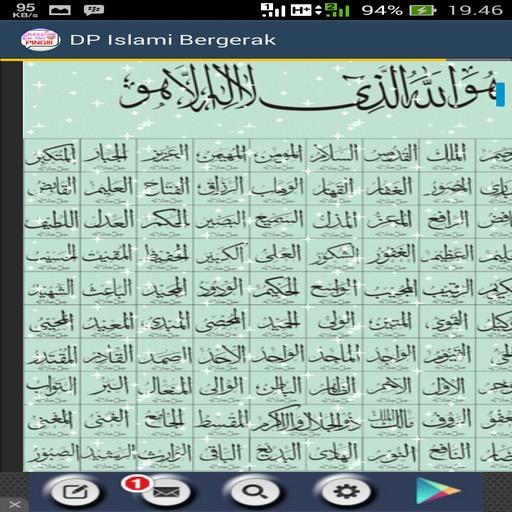 95 KB/s 1 H+ 2 94% 19.46
PING!!!
DP Islami Bergerak
هو الله الذي لا اله الا هو
الملك القدوس السلام المؤمن المهيمن العزيز الجبار المتكبر
المصور الغفار القهار الوهاب الرزاق الفتاح العليم القابض
الرافع المعز المذل السميع البصير الحكم العدل اللطيف
العظيم الغفور الشكور العلي الكبير الحفيظ المقيت الحسيب
الرقيب المجيب الواسع الحكيم الودود المجيد الباعث الشهيد
القوي المتين الولي الحميد المحصي المبدئ المعيد المحيي
القيوم الواجد الماجد الواحد الاحد الصمد القادر المقتدر
الاول الاخر الظاهر الباطن الوالي المتعال البر التواب
الرؤف مالك الملك ذو الجلال والاكرام المقسط الجامع الغني المغني
النافع النور الهادي البديع الباقي الوارث الرشيد الصبور
1